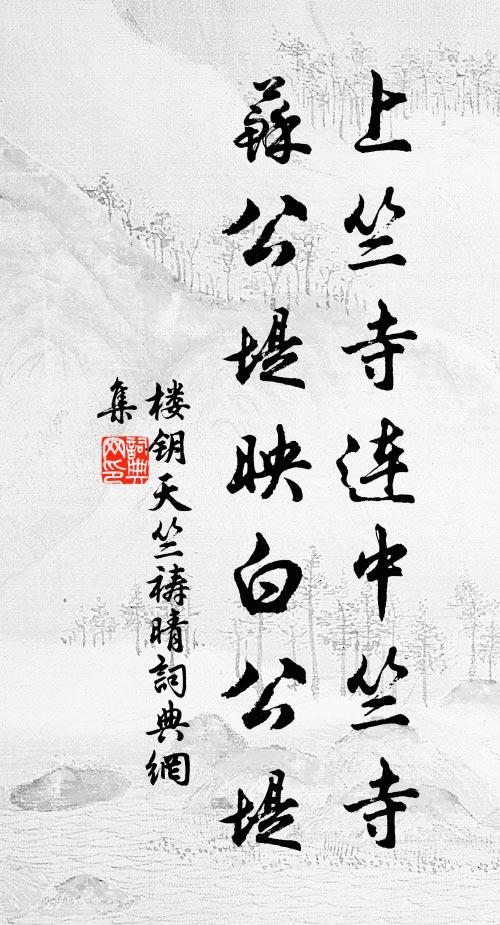 上竺寺连中竺寺
蘇公堤映白公堤
楼钥天竺祷晴詞典網
集
詞典网印